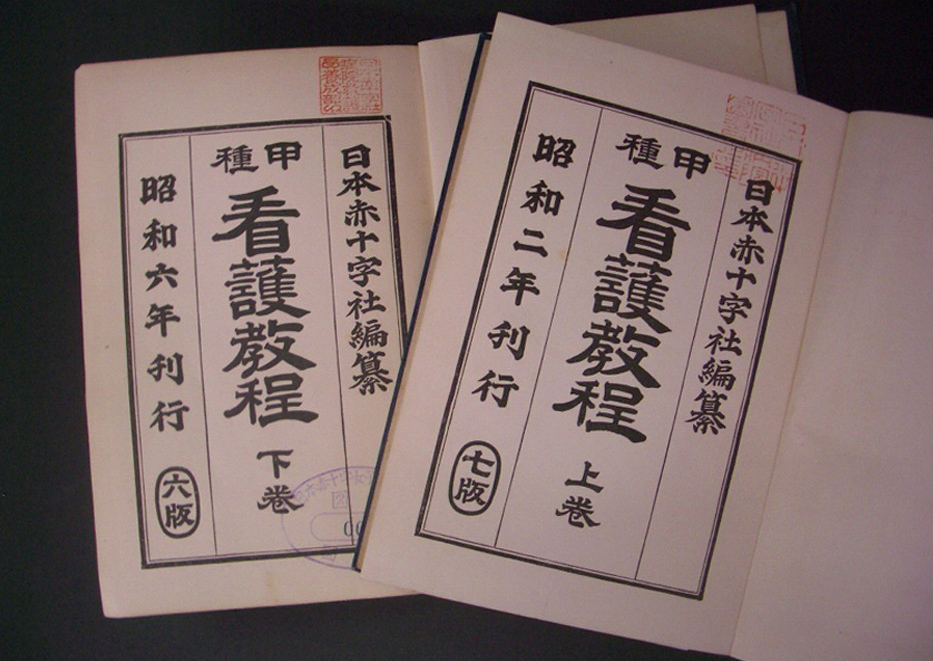 日本赤十字社編纂
甲種
看護教程 上巻
昭和二年刊行
七版
日本赤十字社編纂
甲種
看護教程 下巻
昭和六年刊行
六版